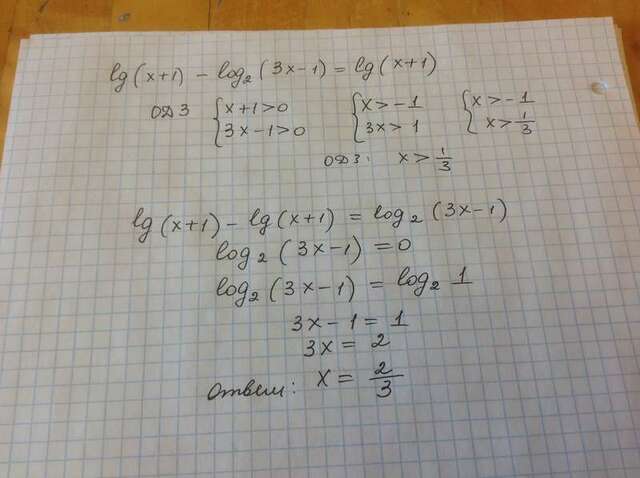 lg(x+1) - log₂(3x-1) = lg(x+1)
ОДЗ { x+1>0 { x>-1 { x>-1
3x-1>0 3x>1 x>1/3
ОДЗ: x>1/3
lg(x+1) - lg(x+1) = log₂(3x-1)
log₂(3x-1) = 0
log₂(3x-1) = log₂ 1
3x-1 = 1
3x = 2
Ответ: x = 2/3